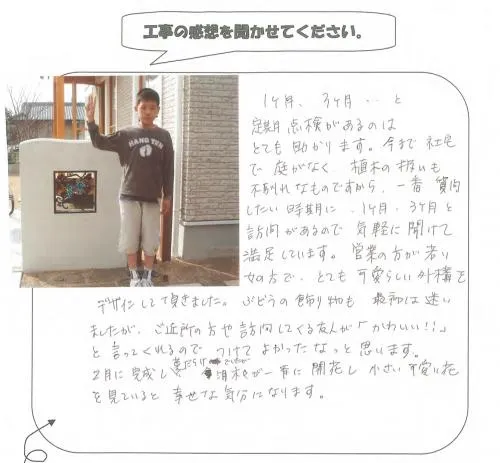 工事の感想を聞かせてください。
HANG TEN
1ヶ月、3ヶ月…と
定期点検があるのは
とても助かります。今まで社宅
で庭がなく、植木の扱いも
不慣れなものですから、一番質問
したい時期に、1ヶ月、3ヶ月と
訪問があるので気軽に聞けて
満足しています。営業の方が若い
女の方で、とても可愛らしい外構を
デザインして頂きました。ぶどうの飾り物も最初は迷い
ましたが、ご近所の方や訪問してくる友人が「かわいい!!」
と言ってくれるのでつけてよかったなっと思います。
2月に完成し、が一斉に開花し小さい可愛い花
を見ていると幸せな気分になります。